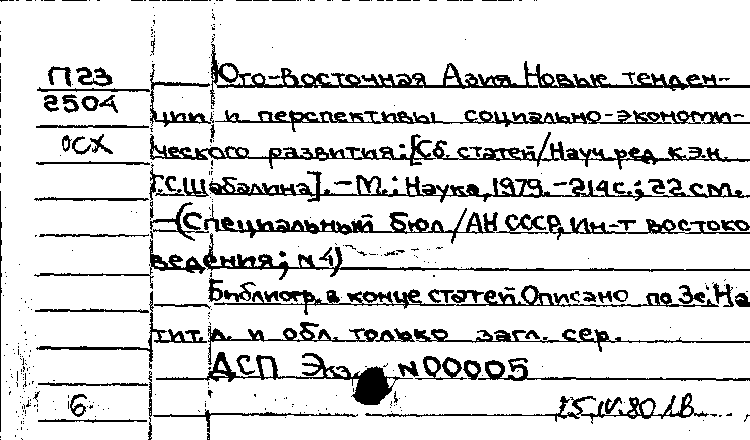 П23
2504
ОСХ
Юго-Восточная Азия. Новые тенден-
ции и перспективы социально-экономи-
ческого развития: [Сб. статей/Науч. ред. к.э.н.
Г.С.Шабалина]. - М.: Наука, 1979. - 214 с.; 22 см.
- (Специальный бюл./АН СССР, Ин-т востоко
ведения; N 4)
Библиогр. в конце статей. Описано по 3с. На
тит. л. и обл. только загл. сер.
ДСП Экз. N00005
6
15.IV.80